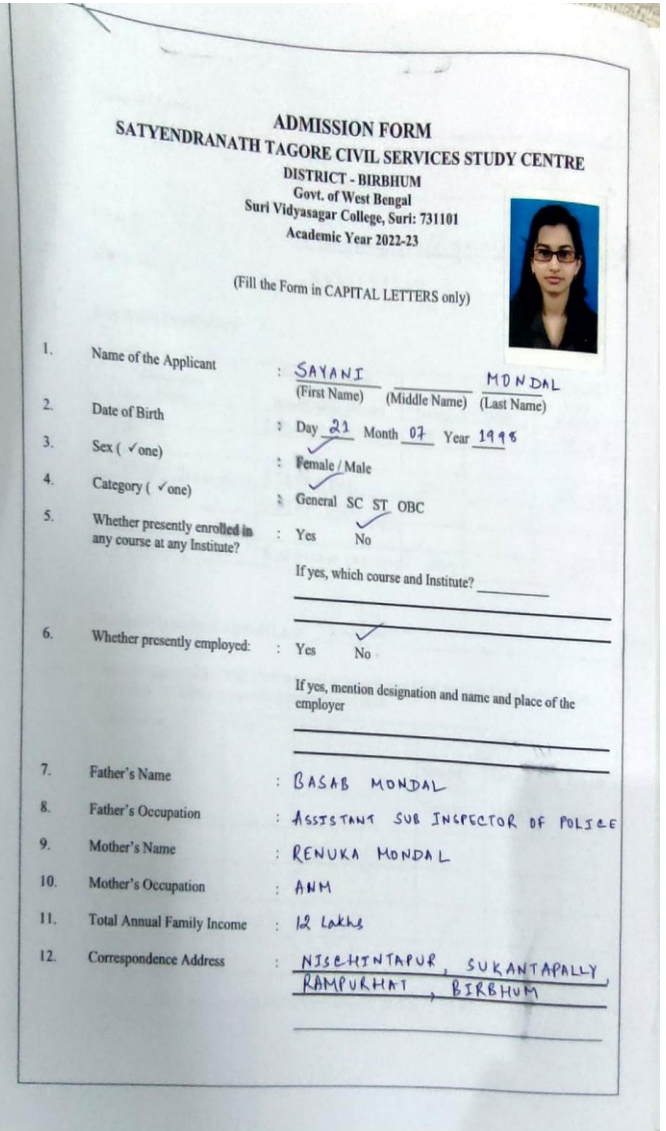 ADMISSION FORM
SATYENDRANATH TAGORE CIVIL SERVICES STUDY CENTRE
DISTRICT - BIRBHUM
Govt. of West Bengal
Suri Vidyasagar College, Suri: 731101
Academic Year 2022-23
(Fill the Form in CAPITAL LETTERS only)
1. Name of the Applicant : SAYANI MONDAL
(First Name) (Middle Name) (Last Name)
2. Date of Birth : Day 21 Month 07 Year 1998
3. Sex ( ✓one) : Female / Male
4. Category ( ✓one) : General SC ST OBC
5. Whether presently enrolled in any course at any Institute? : Yes No
If yes, which course and Institute?
6. Whether presently employed: : Yes No
If yes, mention designation and name and place of the
employer
7. Father's Name : BASAB MONDAL
8. Father's Occupation : ASSISTANT SUB INSPECTOR OF POLICE
9. Mother's Name : RENUKA MONDAL
10. Mother's Occupation : ANM
11. Total Annual Family Income : 12 Lakhs
12. Correspondence Address : NISCHINTAPUR, SUKANTAPALLY,
RAMPURHAT, BIRBHUM